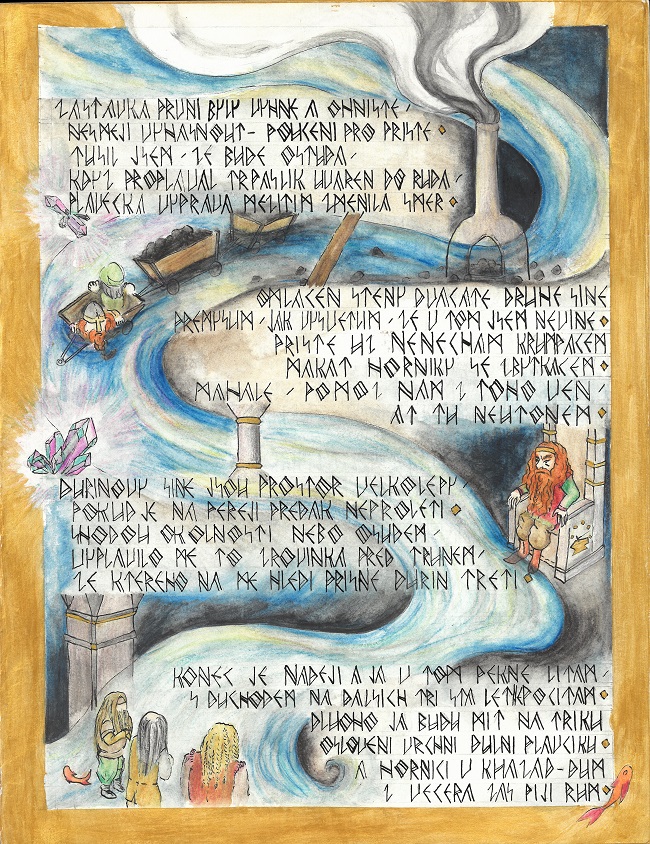 ZASTAVKA PRVNI BYLY VYHNE A OHNISTE,
NESMEJI VYHASNOUT - POUCENI PRO PRISTE.
TUSIL JSEM, ZE BUDE OSTUDA,
KDYZ PROPLAVAL TRPASLIK UVAREN DO RUDA,
PLAVECKA VYPRAVA MELITIM ZMENILA SMER.
OMLACEN STENY DVACATE DRUHE SINE
PREMYSLIM, JAK VYSVETLIM, ZE V TOM JSEM NEVINE.
PRISTE UZ NENECHAM KRUMPACEM
MAKAT HORNIKY SE ZBYTKACEM.
MAHALE, POMOZ NAM Z TOHO VEN,
AT TU NEUTONEM.
DURINOVY SINE JSOU PROSTOR VELKOLEPY,
POKUD JE NA PEREJI PREDAK NEPROLETI.
VHODOU OKOLNOSTI NEBO OSUDEM,
VYPLAVILO ME TO ZROVINKA PRED TRUNEM,
ZE KTEREHO NA ME HLEDI PRISNE DURIN TRETI.
KONEC JE NADEJI A JA V TOM PEKNE LITAM,
S DUCHODEM NA DALSICH TRI STA LET NEPOCITAM.
DLUHO JA BUDU MIT NA TRIKU
OSLOVENI VRCHNI DULNI PLAVCIKU.
A HORNICI V KHAZAD-DUM
Z VECERA ZAS PIJI RUM.